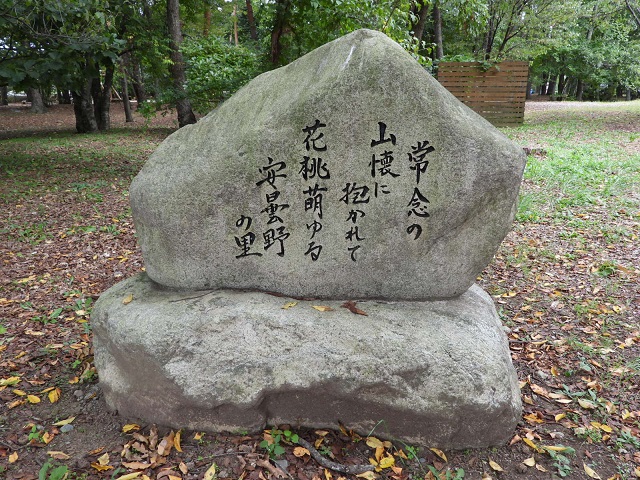 常念の
山懐に
抱かれて
花桃萌ゆる
安曇野
の里